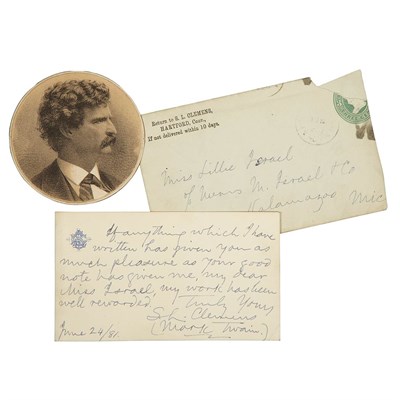 Return to S. L. CLEMENS,
HARTFORD, Conn.,
If not delivered within 10 days.
Miss Lillie Israel
of Means M. Israel & Co
Kalamazoo Mic
If anything which I have
written has given you as
much pleasure as your good
note has given me, my dear
Miss Israel, my work has been
well rewarded. Truly Yours
S L. Clemens
June 24/81. (Mark Twain.)